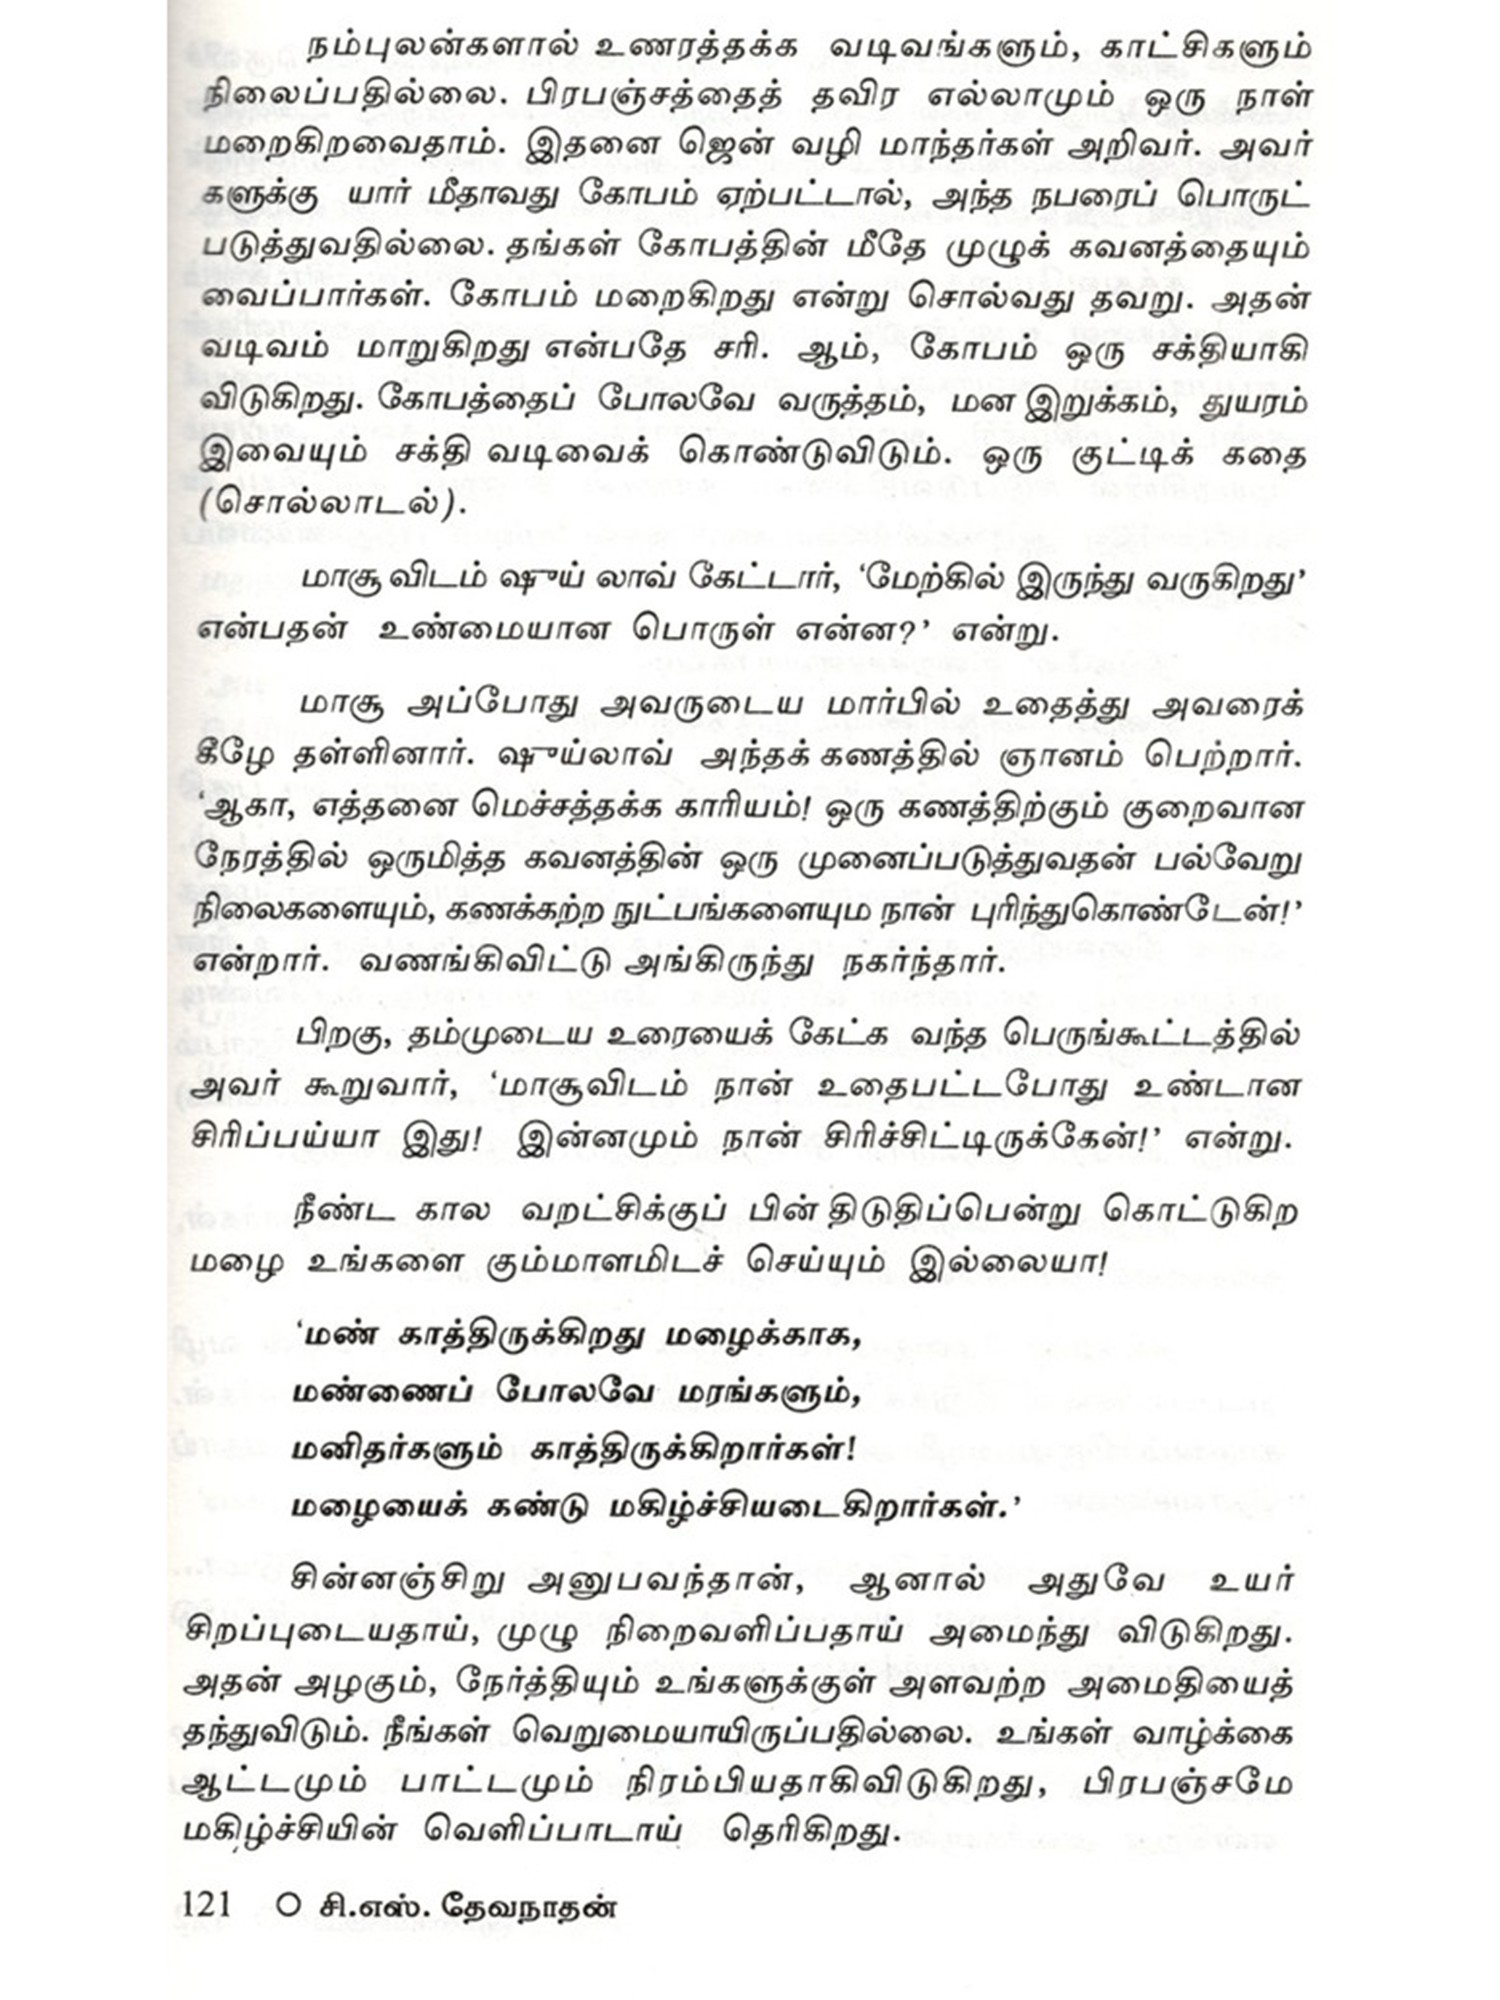 நம்புலன்களால் உணரத்தக்க வடிவங்களும், காட்சிகளும்
நிலைப்பதில்லை. பிரபஞ்சத்தைத் தவிர எல்லாமும் ஒரு நாள்
மறைகிறவைதாம். இதனை ஜென் வழி மாந்தர்கள் அறிவர். அவர்
களுக்கு யார் மீதாவது கோபம் ஏற்பட்டால், அந்த நபரைப் பொருட்
படுத்துவதில்லை. தங்கள் கோபத்தின் மீதே முழுக் கவனத்தையும்
வைப்பார்கள். கோபம் மறைகிறது என்று சொல்வது தவறு. அதன்
வடிவம் மாறுகிறது என்பதே சரி. ஆம், கோபம் ஒரு சக்தியாகி
விடுகிறது. கோபத்தைப் போலவே வருத்தம், மன இறுக்கம், துயரம்
இவையும் சக்தி வடிவைக் கொண்டுவிடும். ஒரு குட்டிக் கதை
(சொல்லாடல்).
மாசூவிடம் ஷுய் லாவ் கேட்டார், ‘மேற்கில் இருந்து வருகிறது’
என்பதன் உண்மையான பொருள் என்ன?’ என்று.
மாசூ அப்போது அவருடைய மார்பில் உதைத்து அவரைக்
கீழே தள்ளினார். ஷுய்லாவ் அந்தக் கணத்தில் ஞானம் பெற்றார்.
‘ஆகா, எத்தனை மெச்சத்தக்க காரியம்! ஒரு கணத்திற்கும் குறைவான
நேரத்தில் ஒருமித்த கவனத்தின் ஒரு முனைப்படுத்துவதன் பல்வேறு
நிலைகளையும், கணக்கற்ற நுட்பங்களையும நான் புரிந்துகொண்டேன்!’
என்றார். வணங்கிவிட்டு அங்கிருந்து நகர்ந்தார்.
பிறகு, தம்முடைய உரையைக் கேட்க வந்த பெருங்கூட்டத்தில்
அவர் கூறுவார், ‘மாசூவிடம் நான் உதைபட்டபோது உண்டான
சிரிப்பய்யா இது! இன்னமும் நான் சிரிச்சிட்டிருக்கேன்!’ என்று.
நீண்ட கால வறட்சிக்குப் பின் திடுதிப்பென்று கொட்டுகிற
மழை உங்களை கும்மாளமிடச் செய்யும் இல்லையா!
‘மண் காத்திருக்கிறது மழைக்காக,
மண்ணைப் போலவே மரங்களும்,
மனிதர்களும் காத்திருக்கிறார்கள்!
மழையைக் கண்டு மகிழ்ச்சியடைகிறார்கள்.’
சின்னஞ்சிறு அனுபவந்தான், ஆனால் அதுவே உயர்
சிறப்புடையதாய், முழு நிறைவளிப்பதாய் அமைந்து விடுகிறது.
அதன் அழகும், நேர்த்தியும் உங்களுக்குள் அளவற்ற அமைதியைத்
தந்துவிடும். நீங்கள் வெறுமையாயிருப்பதில்லை. உங்கள் வாழ்க்கை
ஆட்டமும் பாட்டமும் நிரம்பியதாகிவிடுகிறது, பிரபஞ்சமே
மகிழ்ச்சியின் வெளிப்பாடாய் தெரிகிறது.
121 O சி.எஸ். தேவநாதன்